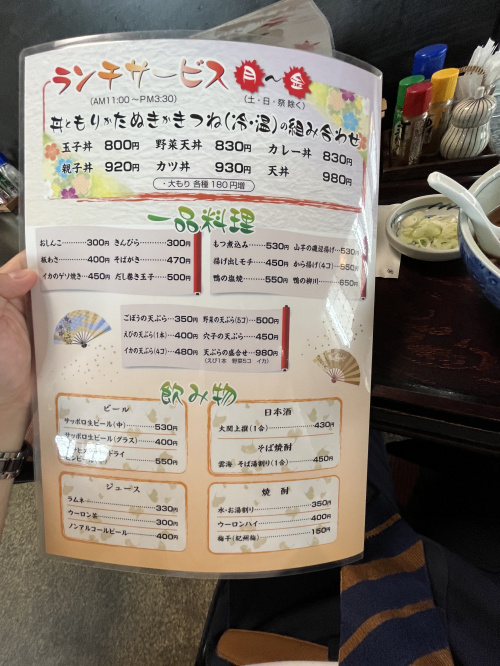 ランチサービス 月～金
(AM11:00～PM3:30) (土・日・祭除く)
丼ともりかたぬきかきつね(冷・温)の組み合わせ
玉子丼 800円 野菜天丼 830円 カレー丼 830円
親子丼 920円 カツ丼 930円 天丼 980円
・大もり 各種 180円増
一品料理
おしんこ………300円 きんぴら………300円
板わさ………400円 そばがき………470円
イカのゲソ焼き…450円 だし巻き玉子……500円
もつ煮込み……530円 山芋の磯辺揚げ…530円
揚げ出しモチ…450円 から揚げ(4コ)…550円
鴨の塩焼………550円 鴨の柳川………650円
ごぼうの天ぷら…350円 野菜の天ぷら(5コ)…500円
えびの天ぷら(1本)…400円 穴子の天ぷら……450円
イカの天ぷら(4コ)…480円 天ぷらの盛合せ…980円
(えび1本 野菜5コ イカ)
飲み物
ビール
サッポロ生ビール(中)………530円
サッポロ生ビール(グラス)……400円
ドライ
550円
日本酒
大関上撰(1合)………430円
そば焼酎
雲海 そば湯割り(1合)……450円
ジュース
ラムネ………330円
ウーロン茶………300円
ノンアルコールビール………400円
焼酎
水・お湯割り………350円
ウーロンハイ………400円
梅干(紀州梅)………150円